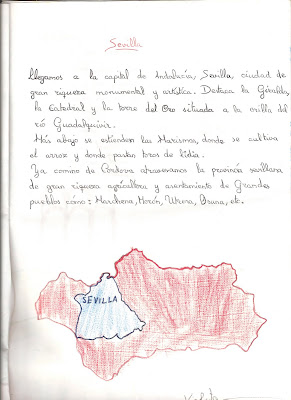 Sevilla
Llegamos a la capital de Andalucía, Sevilla, ciudad de
gran riqueza monumental y artística. Destaca la Giralda,
la Catedral y la torre del Oro situada a la orilla del
río Guadalquivir.
Más abajo se extienden las Marismas, donde se cultiva
el arroz y donde pastan toros de lidia.
Ya camino de Córdova atravesamos la provincia sevillana
de gran riqueza agricultora y asentamiento de Grandes
pueblos cómo: Marchena, Morón, Utrera, Osuna, etc.
SEVILLA